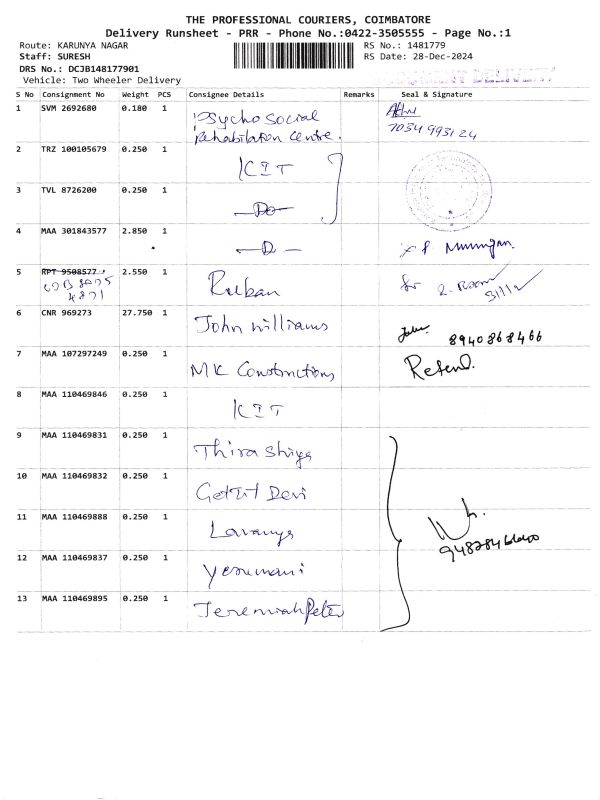 THE PROFESSIONAL COURIERS, COIMBATORE
Delivery Runsheet - PRR - Phone No.:0422-3505555 - Page No.:1
Route: KARUNYA NAGAR
RS No.: 1481779
Staff: SURESH
RS Date: 28-Dec-2024
DRS No.: DCJB148177901
Vehicle: Two Wheeler Delivery
S No Consignment No Weight PCS Consignee Details Remarks Seal & Signature
1 SVM 2692680 0.180 1 Psycho Social
Rehabilation Centre.
2 TRZ 100105679 0.250 1 KIT
3 TVL 8726200 0.250 1 Do
4 MAA 301843577 2.850 1 D
5 RPT 9508577 2.550 1 Ruban
6 CNR 969273 27.750 1 John Williams 8940868466
7 MAA 107297249 0.250 1 MK Constructions
8 MAA 110469846 0.250 1 KIT
9 MAA 110469831 0.250 1
10 MAA 110469832 0.250 1 Devi
11 MAA 110469888 0.250 1 Lavanya
12 MAA 110469837 0.250 1
13 MAA 110469895 0.250 1 Jeremiah Peter